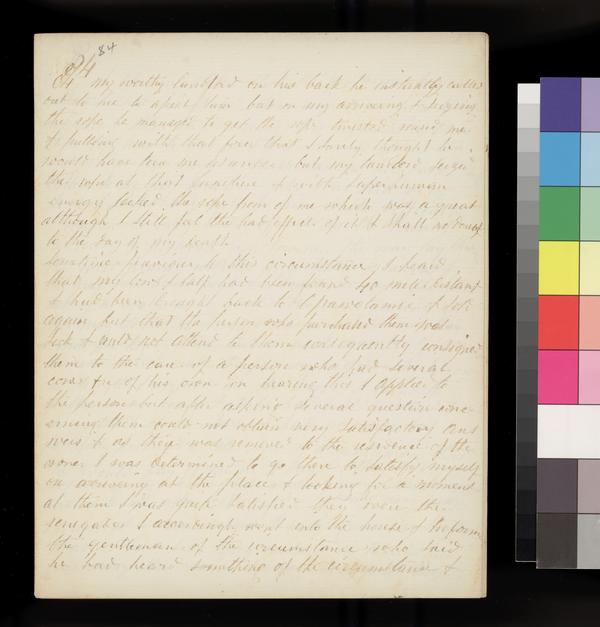 84
84
my worthy landlord on his back he instantly called
out to me to assist him but on my arriving & seizing
the rope he managed to get the rope twisted round me
& pulling with that force that I surely thought he
would have torn me but my landlord seized
the rope at that juncture & with superhuman
energy the rope from me which was a great
although I still feel the bad effects of it & shall no doubt
to the day of my death
sometime previous to this circumstance I heard
that my cow & calf had been found 40 miles distant
& had been brought back to & sold
again but that the person who purchased them was
sick & could not attend to them consequently consigned
them to the care of a person who had several
cows &c of his own on hearing this I applied to
the person but after asking several question conc
erning them could not obtain very satisfactory ans
wers & as they was removed to the residence of the
owner I was determined to go there to satisfy myself
on arriving at the place & looking for a moment
at them I was quite satisfied they were the
I accordingly went into the house & inform
the gentleman of the circumstance who said
he had heard something of the circumstance &